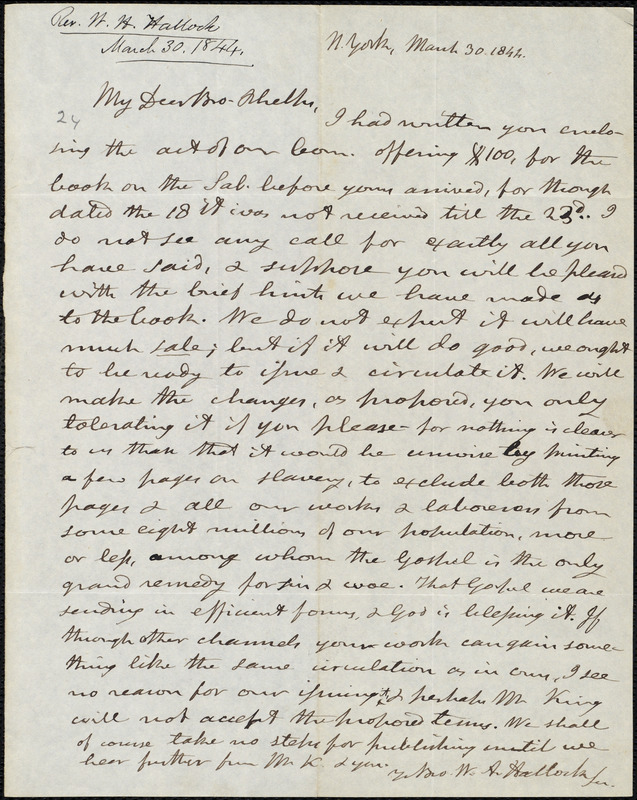 Rev. W. A. Hallock
March 30. 1844.
N. York, March 30. 1844.
24
My Dear Bro. Phelps,
I had written you enclo-
sing the act of our Com. offering $100, for the
book on the Sab. before yours arrived, for though
dated the 18 it was not received till the 23d. I
do not see any call for exactly all you
have said, & suppose you will be pleased
with the brief hints we have made as
to the book. We do not expect it will have
much sale; but if it will do good, we ought
to be ready to issue & circulate it. We will
make the changes, as proposed, you only
tolerating it if you please - for nothing is clearer
to us than that it would be unwise by printing
a few pages on slavery, to exclude both those
pages & all our works & laborers from
some eight millions of our population, more
or less, among whom the Gospel is the only
grand remedy for sin & woe. That Gospel we are
sending in efficient forms, & God is blessing it. If
through other channels your work can gain some-
thing like the same circulation as in ours, I see
no reason for our issuing it, & perhaps Mr King
will not accept the proposed terms. We shall
of course take no steps for publishing until we
hear further from Mr K. & you.
Yr Bro. W. A. Hallock